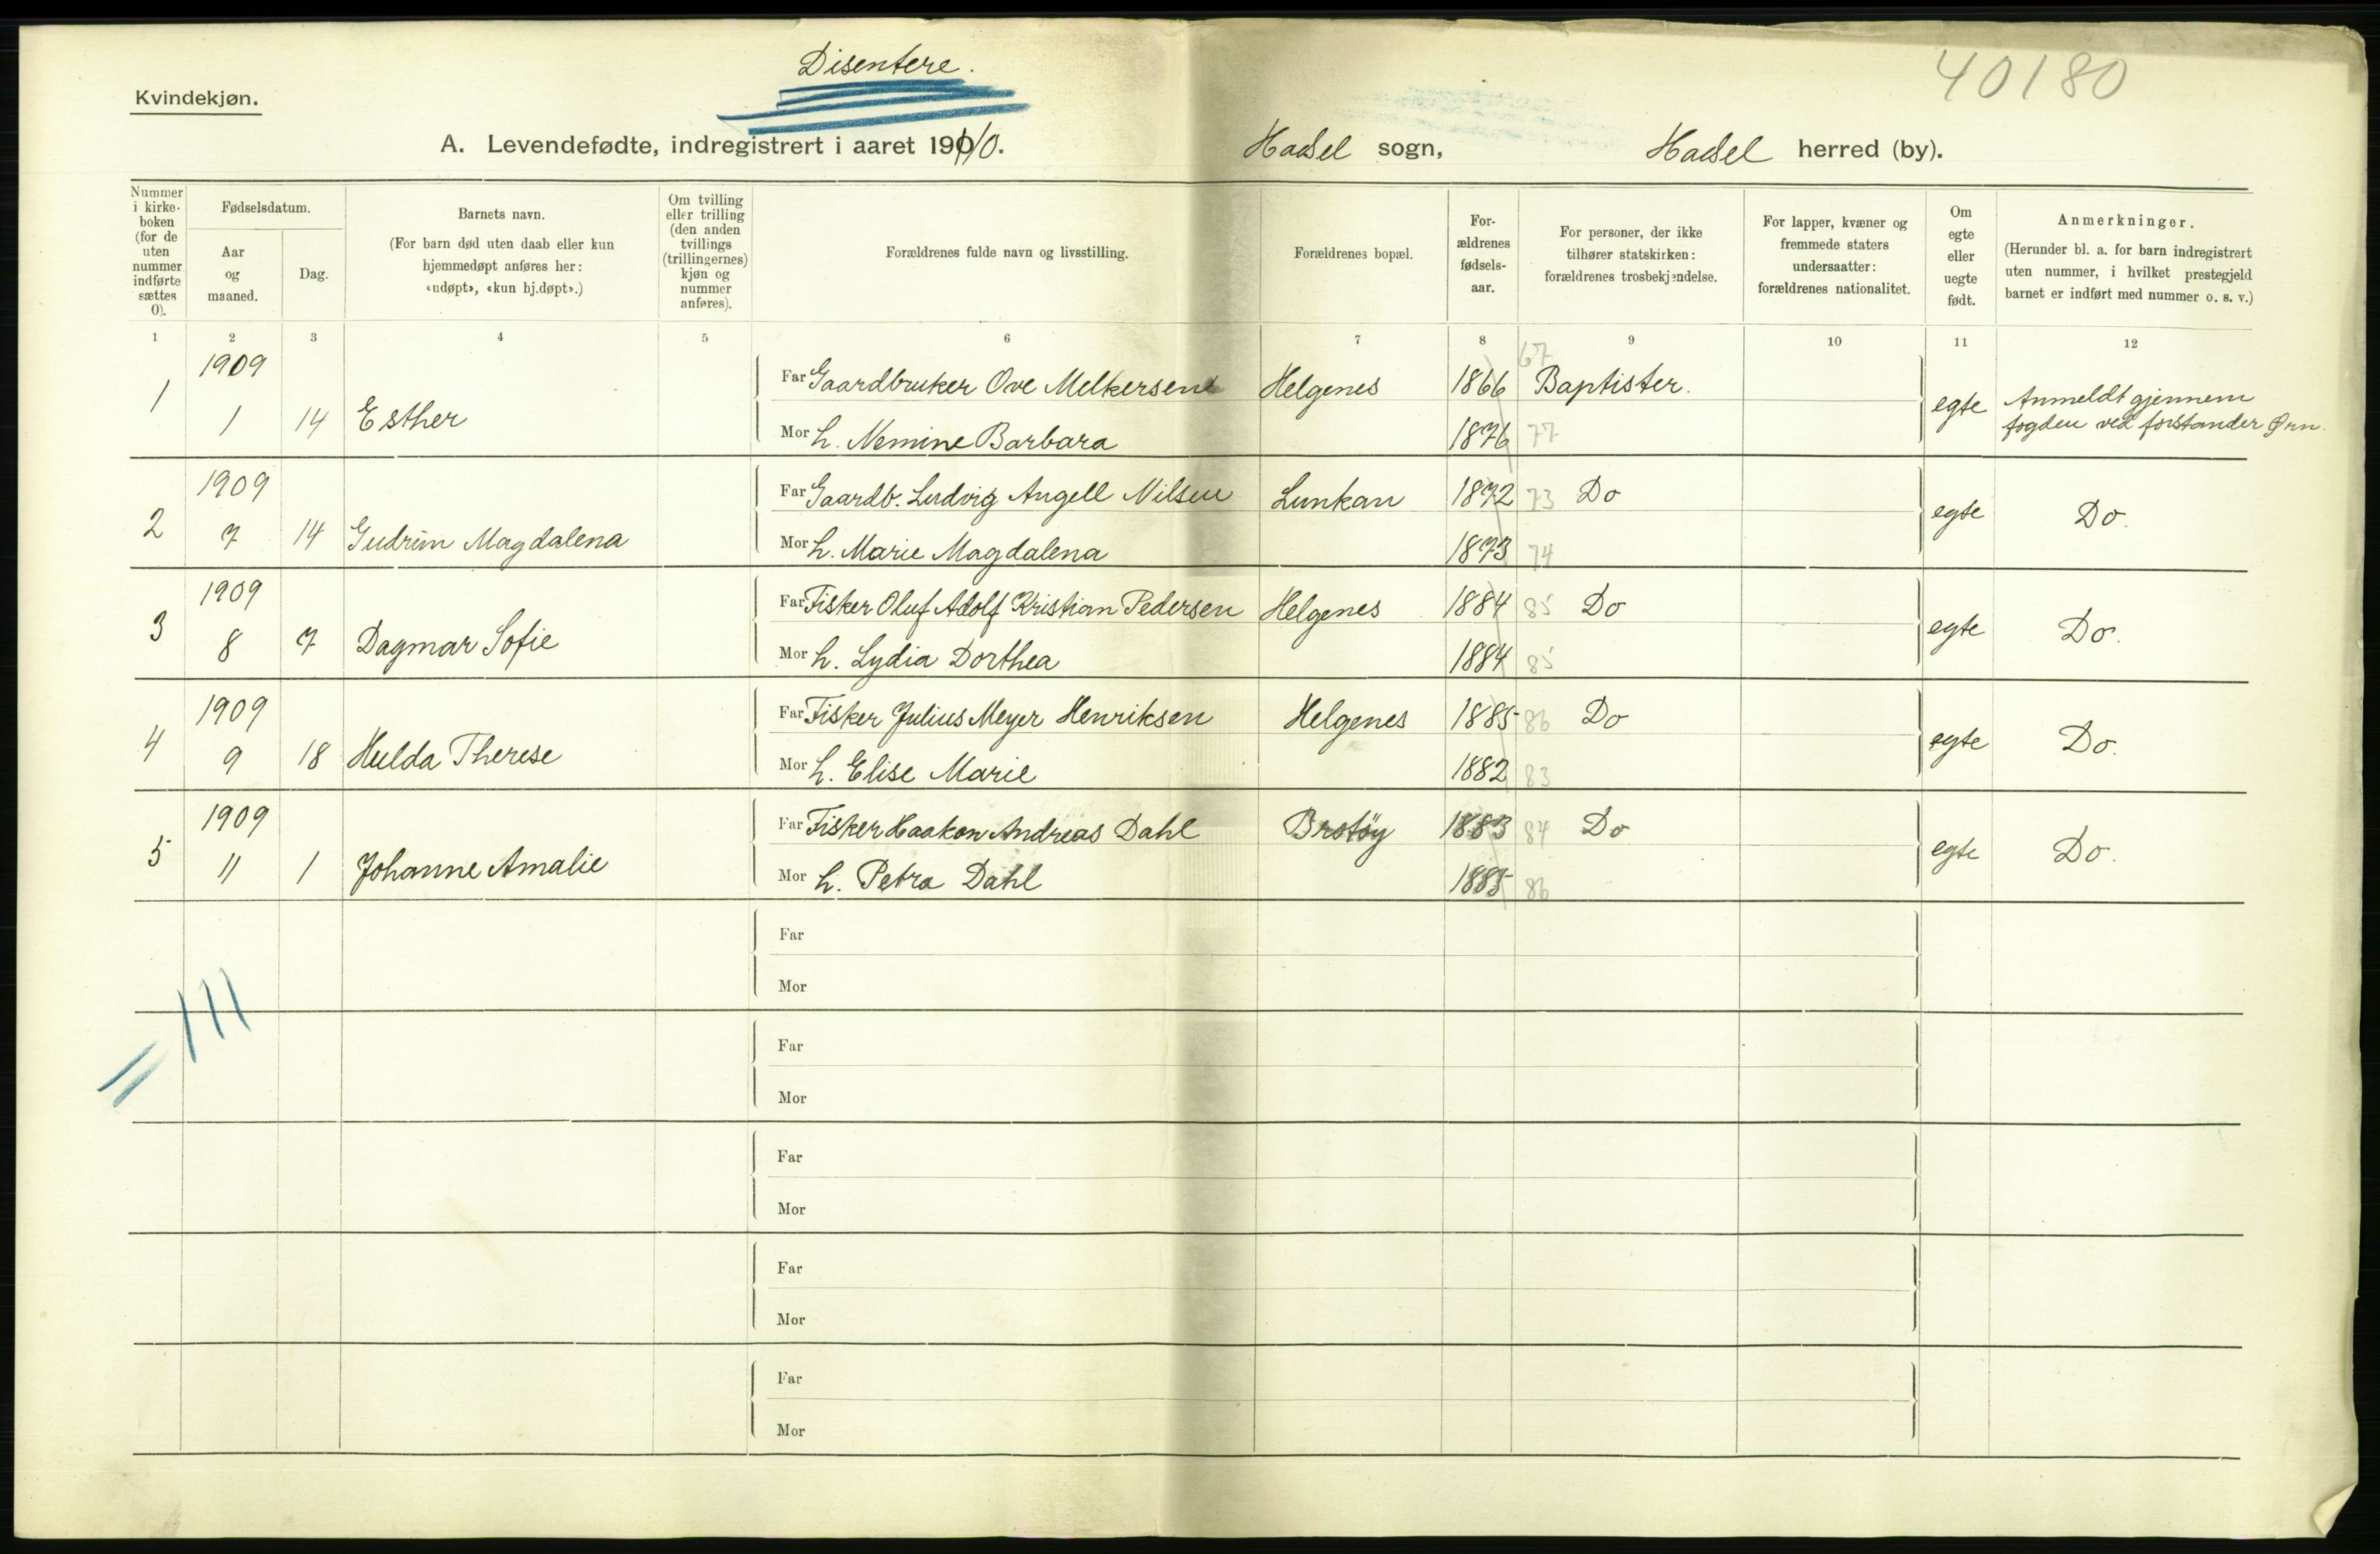 Disentere.
40180
Kvindekjøn.
A. Levendefødte, indregistrert i aaret 1910.
Hadsel sogn, Hadsel herred (by).
Nummer i kirkeboken (for de uten nummer indførte sættes 0).
Fødselsdatum.
Aar og maaned.
Dag.
Barnets navn.
(For barn død uten daab eller kun hjemmedøpt anføres her: «udøpt», «kun hj.døpt».)
Om tvilling eller trilling (den anden tvillings (trillingernes) kjøn og nummer anføres).
Forældrenes fulde navn og livsstilling.
Forældrenes bopæl.
Forældrenes fødselsaar.
For personer, der ikke tilhører statskirken: forældrenes trosbekjendelse.
For lapper, kvæner og fremmede staters undersaatter: forældrenes nationalitet.
Om egte eller uegte født.
Anmerkninger.
(Herunder bl. a. for barn indregistrert uten nummer, i hvilket prestegjeld barnet er indført med nummer o. s. v.)
1 2 3 4 5 6 7 8 9 10 11 12
1 1909 1 14 Esther
Far Gaardbruker Ove Melkersen Helgenes 1866 67 Baptister. egte Anmeldt gjennem fogden ved forstander Ørn.
Mor h. Nemine Barbara 1876 77
2 1909 7 14 Gudrun Magdalena
Far Gaardb. Ludvig Angell Nilsen Lunkan 1872 73 Do egte Do.
Mor h. Marie Magdalena 1873 74
3 1909 8 7 Dagmar Sofie
Far Fisker Oluf Adolf Kristian Pedersen Helgenes 1884 85 Do egte Do.
Mor h. Lydia Dorthea 1884 85
4 1909 9 18 Hulda Therese
Far Fisker Julius Meyer Henriksen Helgenes 1885 86 Do egte Do.
Mor h. Elise Marie 1882 83
5 1909 11 1 Johanne Amalie
Far Fisker Haakon Andreas Dahl Brotøy 1883 84 Do egte Do.
Mor h. Petra Dahl 1885 86
Far
Mor
Far
Mor
Far
Mor
Far
Mor
Far
Mor